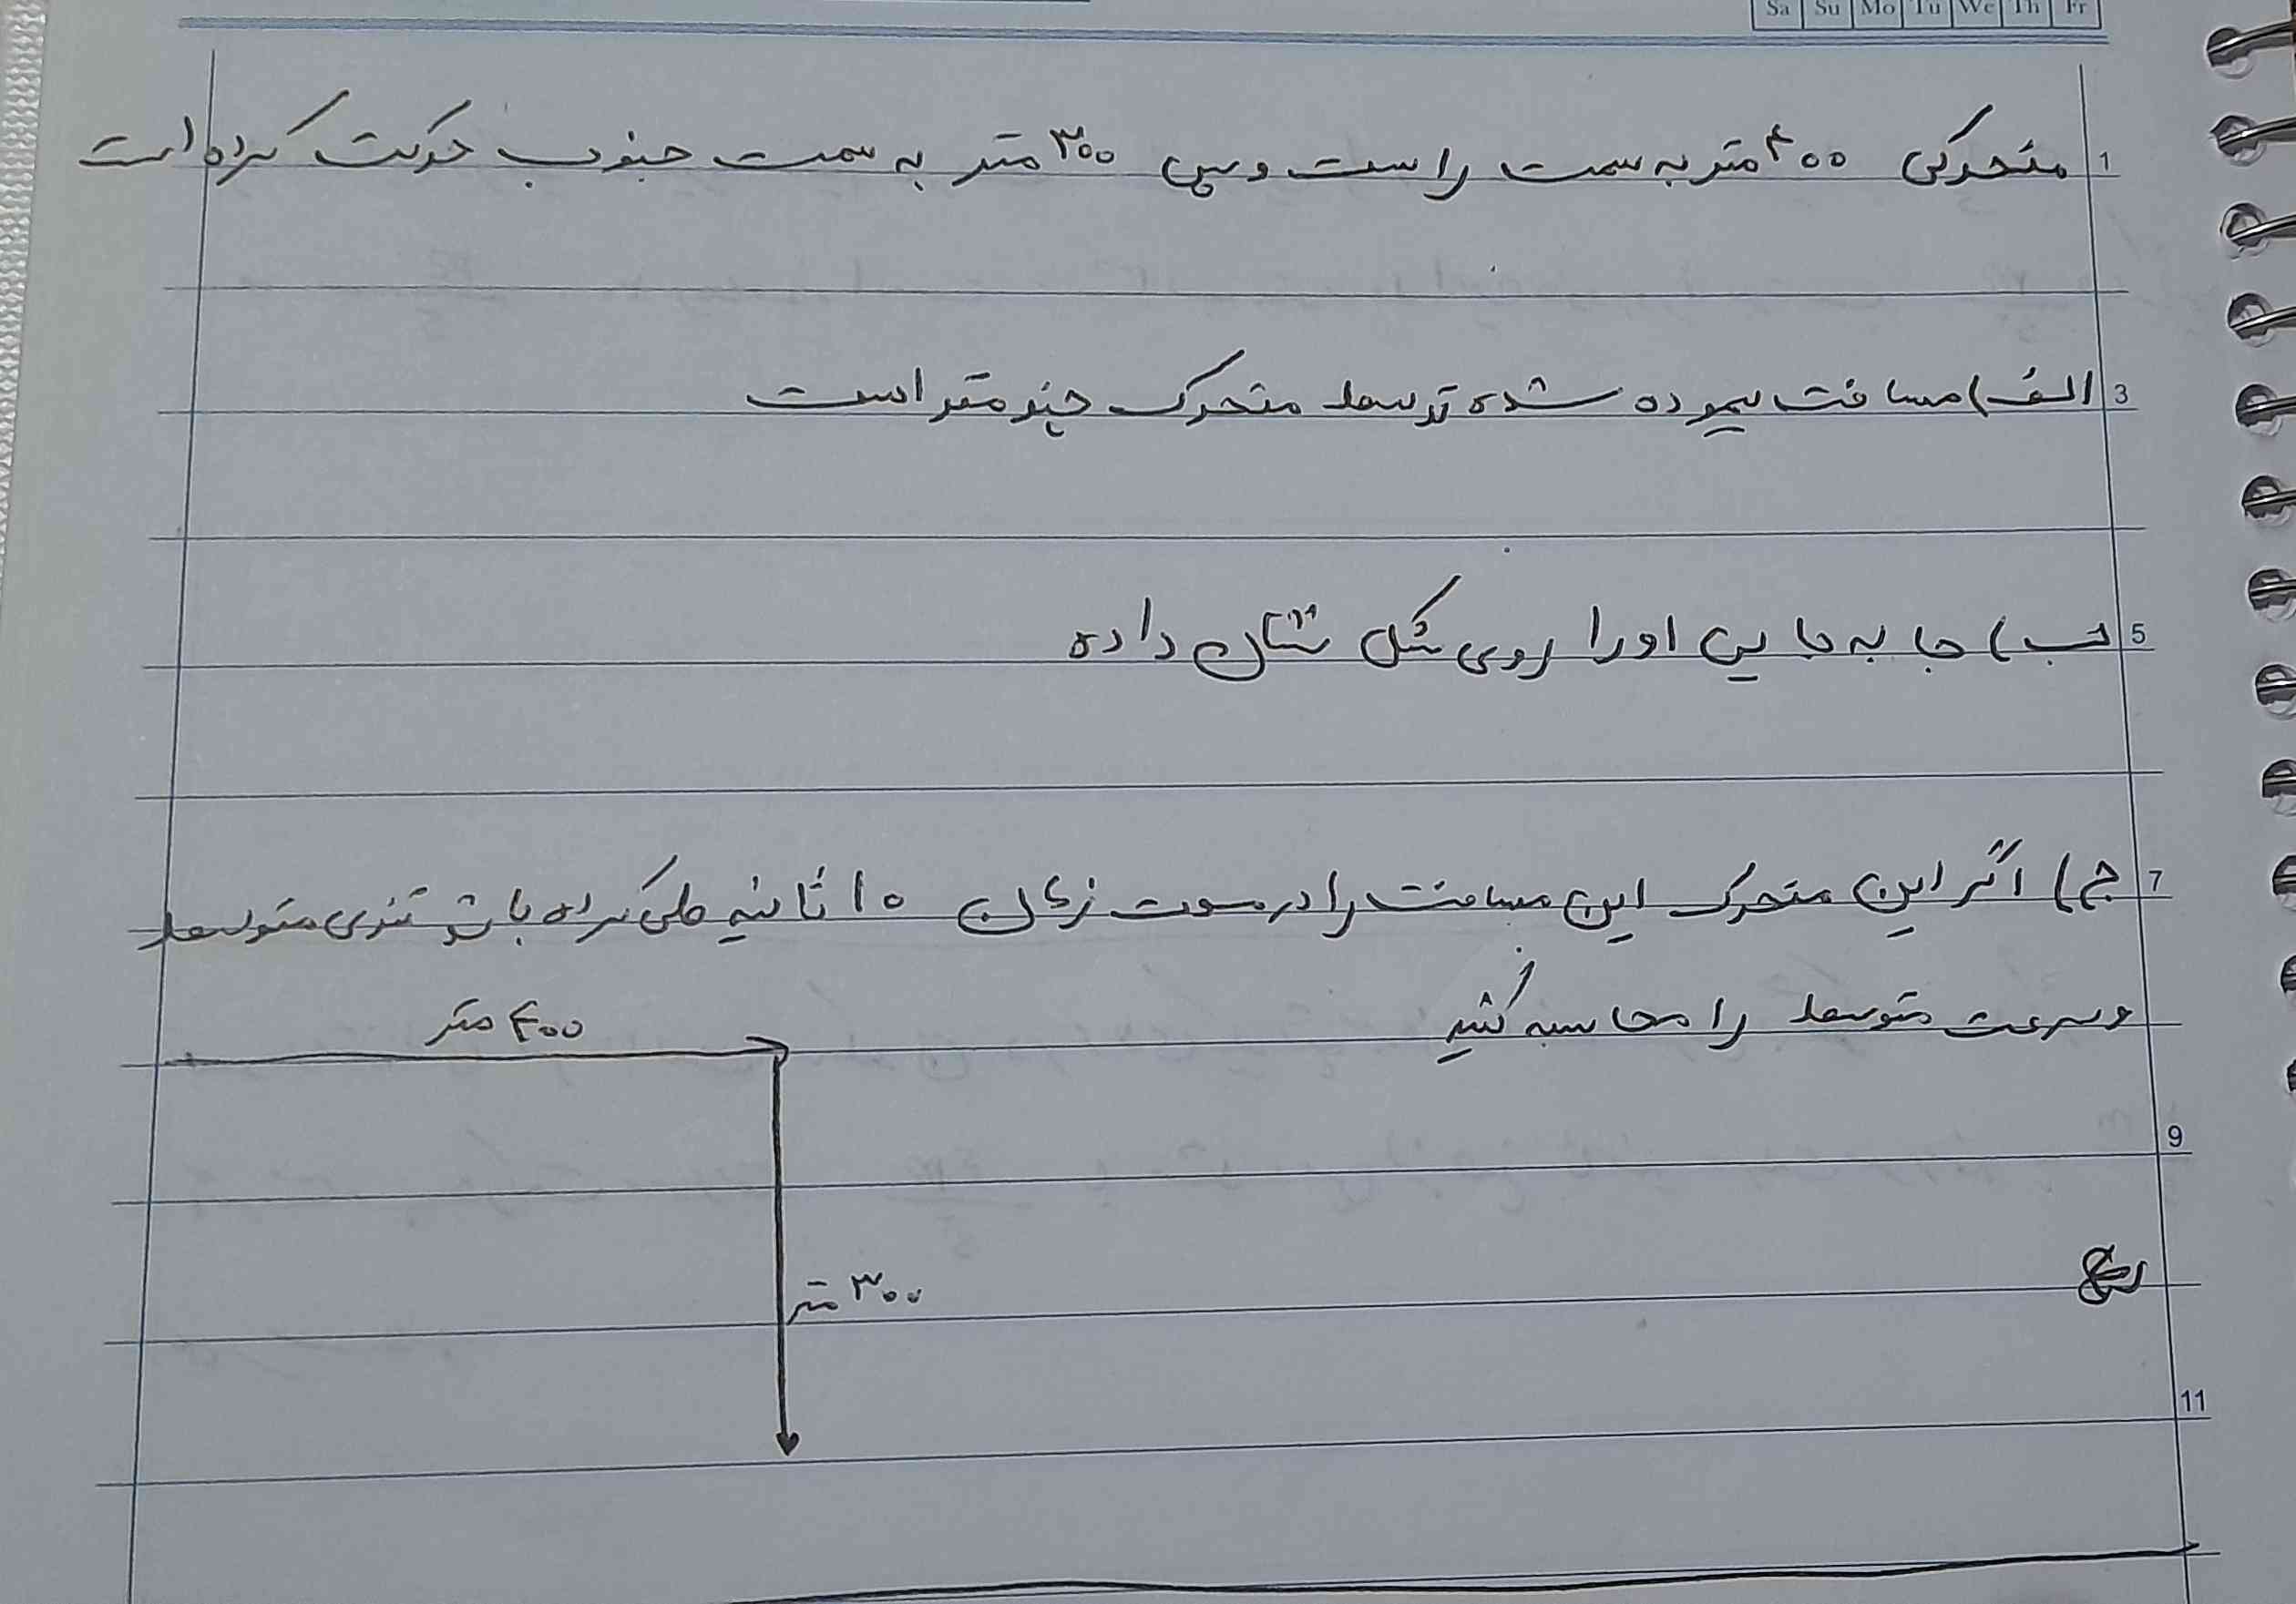 Sa Su Mo Tu We Th Fr
1 متحرکی ۴۰۰ متر به سمت راست و سپس ۳۰۰ متر به سمت جنوب حرکت کرده است
3 الف) مسافت پیموده شده توسط متحرک چند متر است
5 ب) جا به جایی او را روی شکل نشان داده
7 ج) اگر این متحرک این مسافت را در مدت زمان ۱۰ ثانیه طی کرده باشد تندی متوسط
و سرعت متوسط را محاسبه کنید
۴۰۰ متر
9
۳۰۰ متر
11